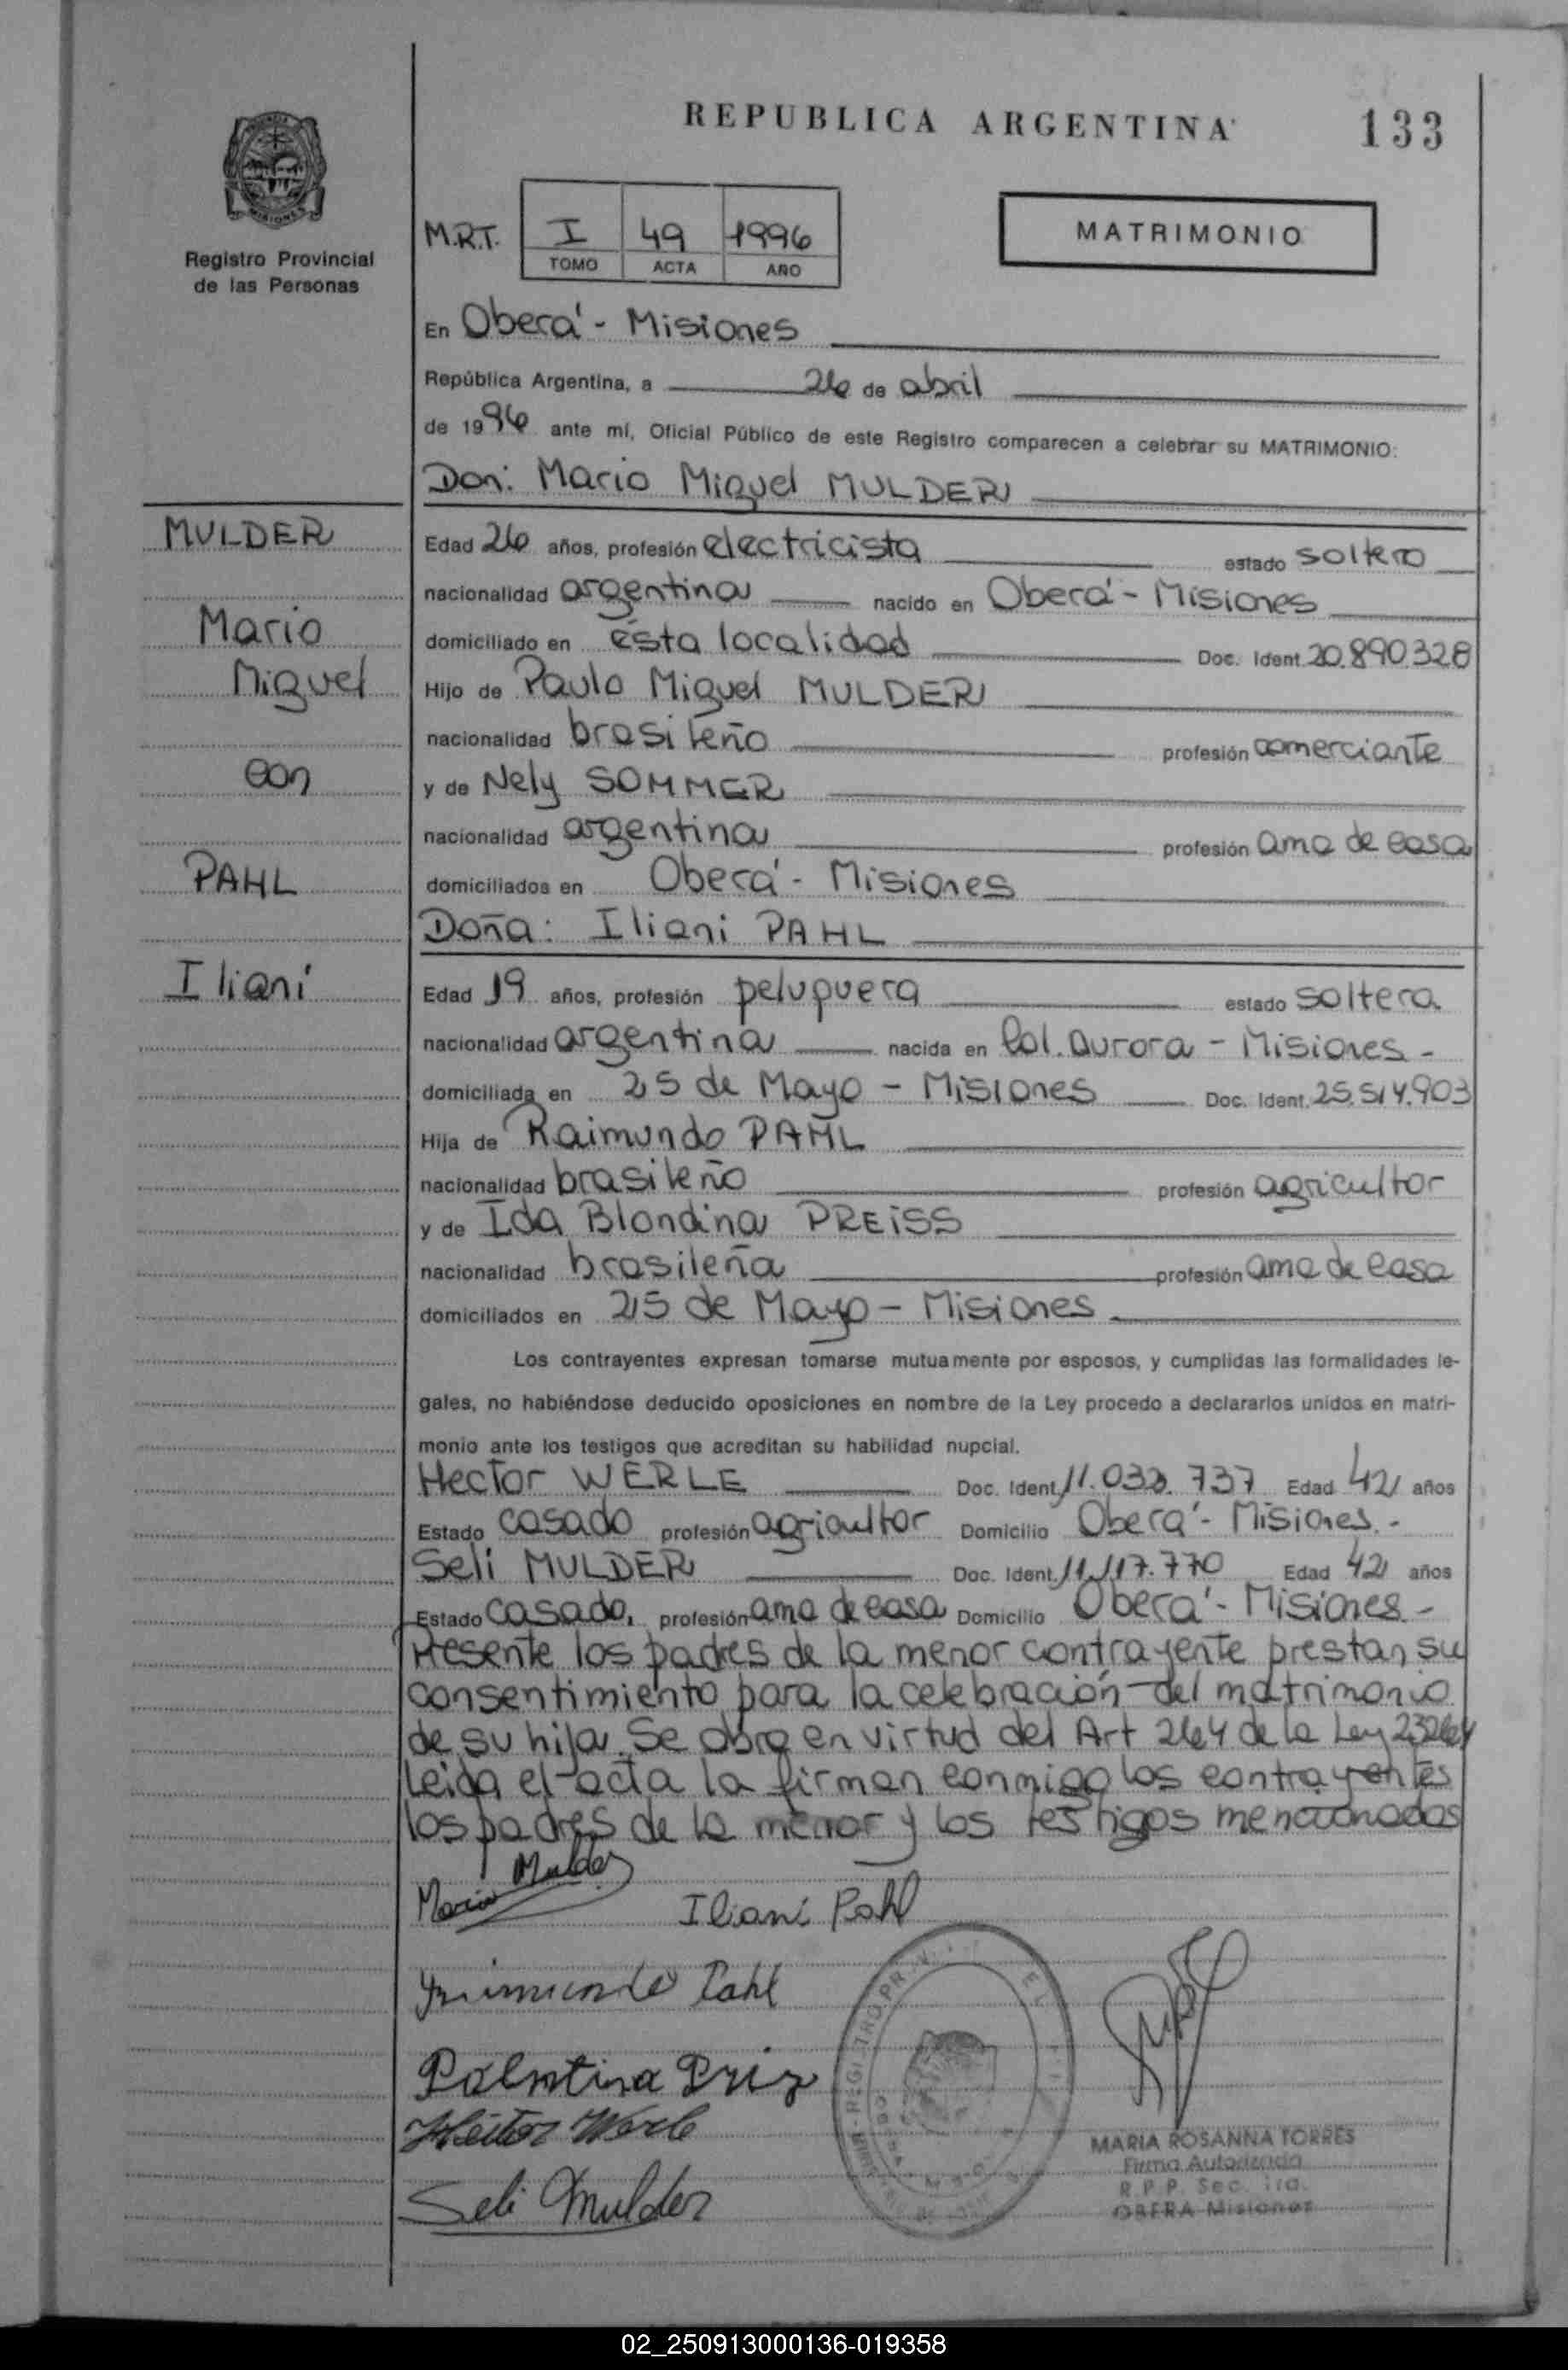 REPUBLICA ARGENTINA
133
Registro Provincial
de las Personas
M.R.T.
I 49 1996
TOMO ACTA AÑO
MATRIMONIO
En Oberá - Misiones
República Argentina, a 26 de abril
de 1996 ante mí, Oficial Público de este Registro comparecen a celebrar su MATRIMONIO:
Don: Mario Miguel MULDER
MULDER
Mario
Miguel
con
PAHL
Iliani
Edad 26 años, profesión electricista estado soltero
nacionalidad argentina nacido en Oberá - Misiones
domiciliado en ésta localidad Doc. Ident. 20.890.328
Hijo de Paulo Miguel MULDER
nacionalidad brasileño profesión comerciante
y de Nely SOMMER
nacionalidad argentina profesión ama de casa
domiciliados en Oberá - Misiones
Doña: Iliani PAHL
Edad 19 años, profesión peluquera estado soltera
nacionalidad argentina nacida en Col. Aurora - Misiones -
domiciliada en 25 de Mayo - Misiones Doc. Ident. 25.514.903
Hija de Raimundo PAHL
nacionalidad brasileño profesión agricultor
y de Ida Blondina PREISS
nacionalidad brasileña profesión ama de casa
domiciliados en 25 de Mayo - Misiones
Los contrayentes expresan tomarse mutuamente por esposos, y cumplidas las formalidades le-
gales, no habiéndose deducido oposiciones en nombre de la Ley procedo a declararlos unidos en matri-
monio ante los testigos que acreditan su habilidad nupcial.
Hector WERLE Doc. Ident. Edad 42 años
Estado casado profesión agricultor Domicilio Oberá - Misiones. -
Seli MULDER Doc. Ident. 11.117.770 Edad 42 años
Estado casada, profesión ama de casa Domicilio Oberá - Misiones -
Presente los padres de la menor contrayente prestan su
consentimiento para la celebración del matrimonio
de su hija. Se obra en virtud del Art 264 de la Ley 23264
Leida el acta la firman conmigo los contrayentes
los padres de la menor y los testigos mencionados
Mario Mulder
Iliani Pahl
Pahl
Werle
Seli Mulder
MARIA ROSANNA TORRES
Firma Autorizada
R.P.P. Sec. 1ra.
OBERA Misiones
02_250913000136-019358